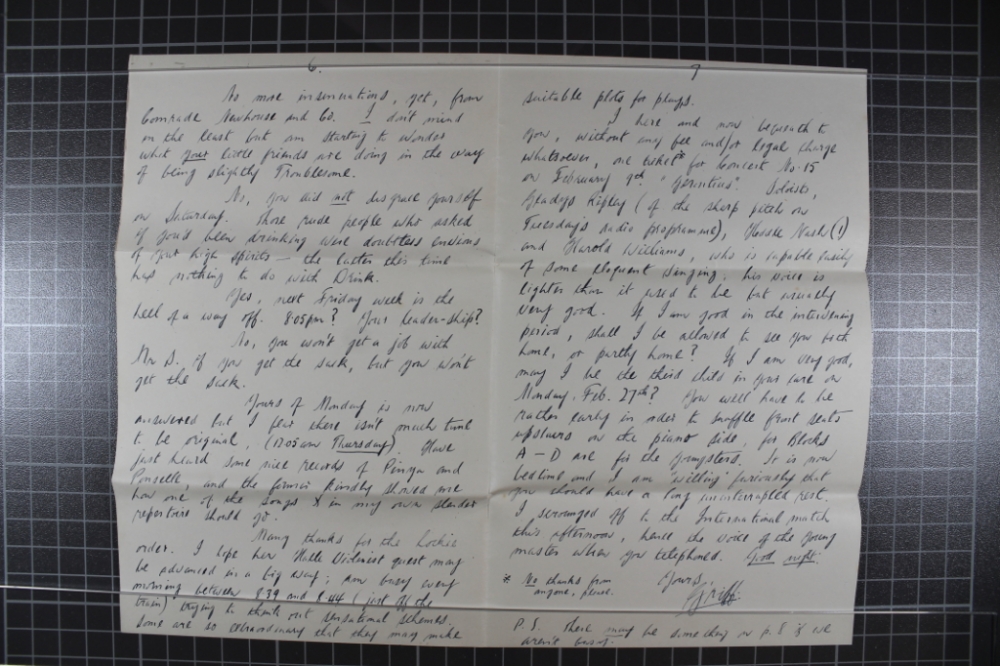 6.
No more insinuations, yet, from
Comrade Newhouse and Co. I don't mind
in the least but am starting to wonder
what your little friends are doing in the way
of being slightly Troublesome.
No, you did not disgrace yourself
on Saturday. Those rude people who asked
if you'd been drinking were doubtless envious
of your high spirits — the latter this time
has nothing to do with Drink.
Yes, next Friday week is the
hell of a way off. 8.05pm? Your leader-ship?
No, you won't get a job with
Mr S. if you get the sack, but you won't
get the sack.
Yours of Monday is now
answered but I fear there isn't much time
to be original, (12.05am Thursday). Have
just heard some nice records of Pinza and
Ponselle, and the former kindly showed me
how one of the songs in my own slender
repertoire should go.
Many thanks for the
order. I hope her Hallé Violinist guest may
be advanced in a big way; am busy every
morning between 8.39 and 8.44 (just off the
train) trying to think out sensational schemes.
Some are so extraordinary that they may make
7
suitable plots for plays.
I here and now bequeath to
you, without any fee and/or legal charge
whatsoever, one ticket* for Concert No. 15
on February 9th, "Gerontius". Soloists,
Gladys Ripley (of the sharp pitch on
Tuesday's radio programme), Heddle Nash (!)
and Harold Williams, who is capable easily
of some eloquent singing; his voice is
lighter than it used to be but usually
very good. If I am good in the intervening
period, shall I be allowed to see you both
home, or partly home? If I am very good,
may I be the third child in your care on
Monday, Feb. 27th? You will have to be
rather early in order to snaffle front seats
upstairs on the piano side, for Blocks
A – D are for the Youngsters. It is now
bedtime and I am willing furiously that
you should have a long uninterrupted rest.
I scrounged off to the International match
this afternoon, hence the voice of the young
master when you telephoned. Good night.
Yours,
Griff.
* No thanks from
anyone, please.
P.S. There may be something on p.8 if we
aren't busy.